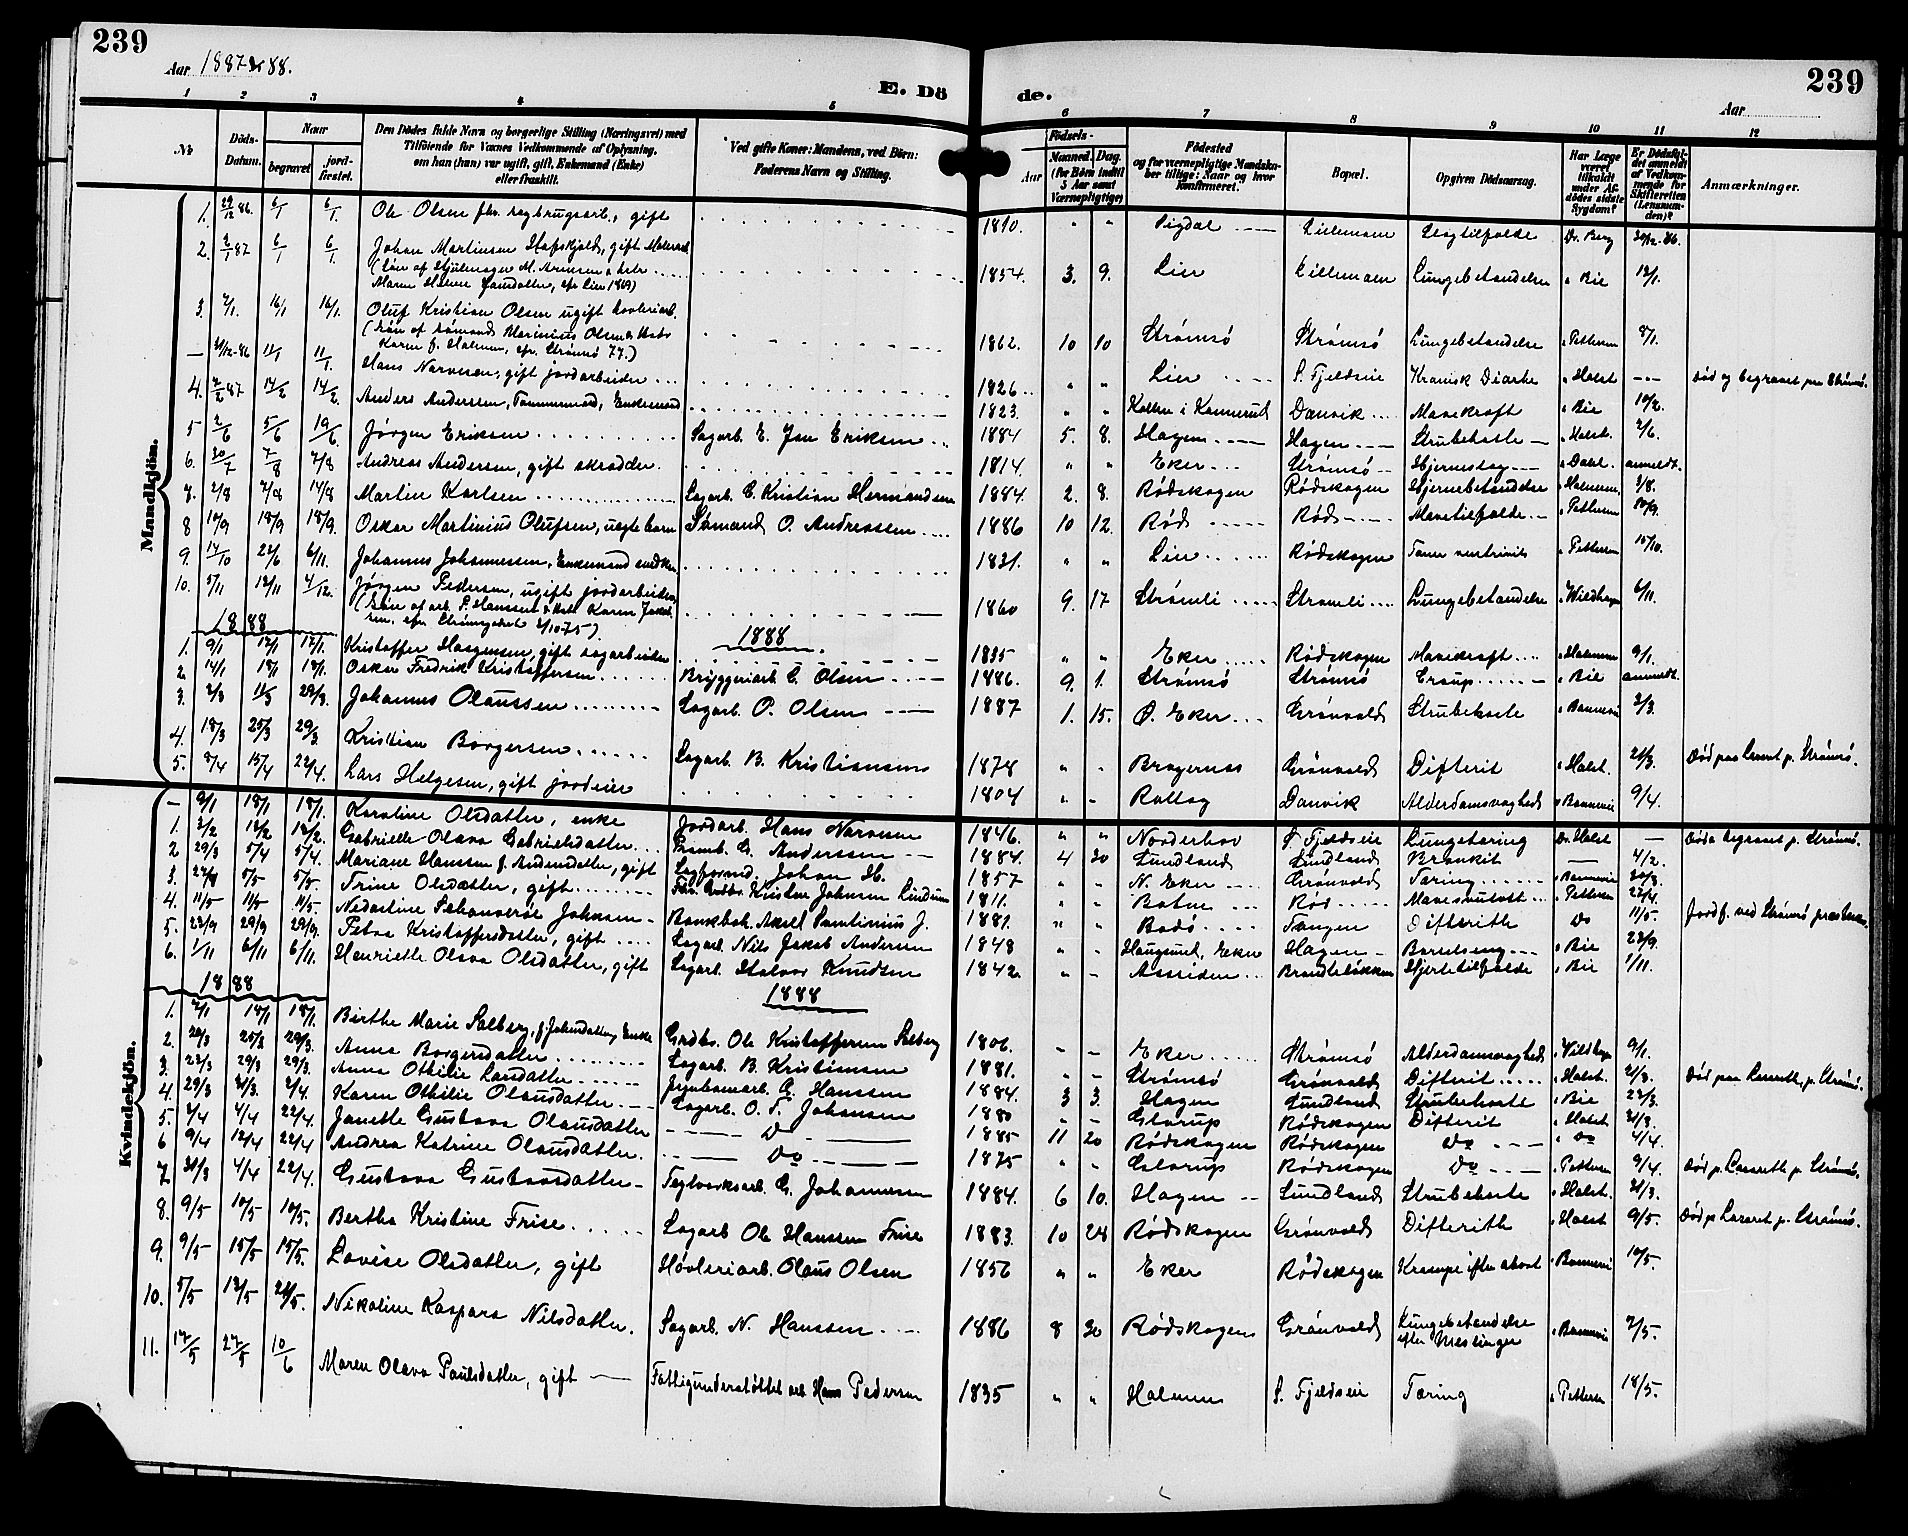 239
Aar 1887 & 88.
E. Döde.
239
Aar
1 2 3 4 5 6 7 8 9 10 11 12
No.
Döds-Datum.
Naar begravet jord-fæstet.
Den Dödes fulde Navn og borgerlige Stilling (Næringsvei) med Tilföiende for Voxnes Vedkommende af Oplysning, om han (hun) var ugift, gift, Enkemand (Enke) eller fraskilt.
Ved gifte Koner: Mandens, ved Börn: Faderens Navn og Stilling.
Födsels-
Aar Maaned. Dag. (for Börn indtil 5 Aar samt Værnepligtige)
Födested og for værnepligtige Mandskaber tillige: Naar og hvor konfirmeret.
Bopæl.
Opgiven Dödsaarsag.
Har Læge været tilkaldt under Afdödes sidste Sygdom?
Er Dödsfaldet anmeldt af Vedkommende for Skifteretten (Lensmanden)?
Anmærkninger.
Mandkjön.
1. 29/12 86. 6/1 6/1. Ole Olsen fhv. sagbrugsarb., gift 1810. " " Sigdal Liermoen Slagtilfælde Dr. Berg 30/12-86.
2. 2/1 87 6/1 6/1. Johan Martinsen Stafskjold, gift
(Søn af Hjulmager M. Arnesen & hstr
Maren Helene Hansdatter, efr Lier 1869) 1854. 3. 9. Lier Lillemoen Lungebetændelse " Bie 12/1.
3. 7/1. 16/1 16/1. Oluf Kristian Olsen ugift høvleriarb.
(Søn af sømand Marinius Olsen & hstr
Karen f. Halvorsen, efr. Strømsø 77.) 1862. 10 10 Strømsø Strømsø Lungebetændelse " Pettersen 8/1.
— 31/12-86 11/1 11/1. Hans Narvesen, gift jordarbeider 1826 " " Lier S. Fjeldseie Kronisk Diarhe " Holst — Død og begravet paa Strømsø.
4. 7/2 87 14/2 14/2. Anders Andersen, Tømmermand, Enkemand 1823. " " Kolbro i Konnerud Danvik Mavekræft " Bie 10/2.
5 2/6 5/6 19/6. Jørgen Eriksen Sagarb. E. Jan Eriksen 1884 5. 8. Hagen Hagen Strubehoste " Holst 2/6.
6. 30/7 7/8 7/8 Andreas Andersen, gift skrædder. 1814. " " Eker Strømsø Hjerneslag " Dahl. anmeldt.
7. 2/8 7/8 14/8 Martin Karlsen Sagarb. C. Kristian Hermansen 1884. 2. 8. Rødskogen Rødskogen Hjernebetændelse " Halvorsen. 3/8.
8 10/9 18/9 18/9. Oskar Martinius Olufsen, uegte barn Sømand O. Andreassen 1886 10 12. Rød Rød Mavetilfælde " Pettersen 10/9.
9. 14/10 22/6 6/11. Johannes Johannesen, Enkemand snedker 1831. " " Lier Rødskogen " Pettersen 15/10.
10. 5/11 12/11 4/12. Jørgen Pedersen, ugift jordarbeider,
(Søn af arb. P. Hansen & hstr Karen Jakobsen,
efr. Strømsgodset 3/10-75). 1860 9. 17 Strømli Strømli Lungebetændelse " Wildhagen 6/11.
1888 1888
1. 9/1 12/1 12/1. Kristoffer Haagensen, gift sagarbeider 1835 " " Eker Rødskogen Mavekræft " Halvorsen 9/1.
2. 14/1 18/1 18/1. Oskar Fredrik Kristoffersen Bryggeriarb. C. Olsen 1886. 9. 1. Strømsø Strømsø Croup " Bie anmeldt.
3. 2/3 11/3 29/3. Johannes Olaussen Sagarb. P. Olsen 1887 1. 15. Ø. Eker Grønvold Strubehoste " Bannevie 3/3.
4. 18/3 25/3 29/3. Kristian Borgersen Sagarb. B. Kristiansen 1878 " " Bragernæs Grønvold Difterit " Holst. 21/3. Død paa Lazaret p. Strømsø.
5. 8/4 15/4 22/4. Lars Helgesen, gift jordeier 1804 " " Rollag Danvik Alderdomsvaghed " Bannevie 9/4.
Kvindekjön.
— 9/1 18/1 18/1. Karoline Olsdatter, enke Jordarb. Hans Narvesen 1846. " " Norderhov S. Fjeldseie Lungetæring Dr. Holst — Død & begravet p. Strømsø.
1. 3/2 12/2 12/2. Gabrielle Olava Gabrielsdatter G. Anderssen 1884. 4 30 Lundland Lundland Bronkit — 4/2.
2 29/3 5/4 5/4. Mariane Hansen f. Andersdatter, gift Lagformd. Johan H. 1857 " " N. Eker Grønvold Tæring " Bannevie 30/3.
3. 27/4 5/5 5/5. Trine Olsdatter, gift Kristen Johnsen Lindum 1811. " " Botne Rød " Pettersen 27/4.
4. 11/5 11/5 11/5. Johnsen Bankbok. Aksel J. 1881. " " Bodø Tangen Difterith Do 11/5. Jordf. ved Strømsø
5. 23/9 29/9 29/9. Petra Kristoffersdatter, gift Sagarb. Nils Jakob Andersen 1848 " " Haugsund, Eker Hagen Barselseng " Bie 23/9.
6. 1/11 6/11 6/11. Henriette Olava Olsdatter, gift Sagarb. Halvor Knudsen 1842. " " Assiden Brandtsløkken Hjertetilfælde " Bie 1/11.
1888 1888
1. 7/1 18/1 18/1. Birthe Marie Solberg, f. Johnsdatter, Enke Grdbr. Ole Kristoffersen Solberg 1806. " " Eker Strømsø Alderdomsvaghed " Wildhagen 9/1.
2. 20/3 25/3 29/3. Anna Borgersdatter Sagarb. B. Kristiansen 1881. " " Strømsø Grønvold Difterit " Holst. 21/3. Død paa Lazareth, p. Strømsø.
3. 22/3 29/3 29/3. Anna Othilie Larsdatter Jernbanearb. L. Hanssen 1884. 3 3. Hagen Lundland Strubehoste " Bie 23/3.
4. 29/3 31/3. 2/4. Karen Othilie Olausdatter Sagarb. O. T. Johansen 1880 " " Glorup Rødskogen Difterit " Holst 31/3.
5. 2/4 4/4 22/4. Janette Gustava Olausdatter — Do — 1885 11 20 Rødskogen Rødskogen Do " Do 4/4.
6 9/4 12/4 22/4 Andrea Katrine Olausdatter. — Do — 1875 " " Glorup Rødskogen Do " Pettersen 9/4. Død p. Lazareth p. Strømsø.
7. 31/3 4/4 22/4 Gustava Gustavsdatter Teglværksarb. G. Johannesen 1884. 6 10. Hagen Lundland Strubehoste " Holst. 31/3.
8. 9/5 10/5 10/5. Bertha Kristine Frise Sagarb. Ole Hanssen Frise 1883. 10 24 Rødskogen Grønvold Difterith " Holst 9/5. Død p. Lazaret p. Strømsø.
9. 9/5 15/5 15/5. Lovise Olsdatter, gift Høvleriarb. Olaus Olsen 1856 " " Eker Rødskogen Krampe efter abort " Bannevie 10/5.
10. 5/5 12/5 21/5. Nikoline Kaspara Nilsdatter. Sagarb. N. Hanssen 1886 8 30 Rødskogen Grønvold Lungebetændelse efter Meslinger " Bannevie 7/5.
11. 17/5 27/5 10/6 Maren Olava Paulsdatter, gift Fattigunderstøttet arb. Hans Pedersen 1835 " " Holmen S. Fjeldseie Tæring " Pettersen 18/5.